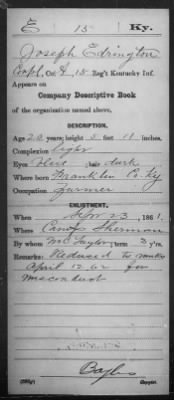 E 15 Ky.
Joseph Edrington
Corpl, Co. 15 Reg't Kentucky Inf.
Appears on
Company Descriptive Book
of the organization named above.
DESCRIPTION.
Age 20 years; height 5 feet 11 inches.
Complexion Light
Eyes ; hair dark
Where born Franklin Co. Ky
Occupation Farmer
ENLISTMENT.
When 23, 1861.
Where Camp Sherman
By whom McTaylor; term 3 y'rs.
Remarks: Reduced to ranks
April 12, 62 for
misconduct
Bayles
Copyist.